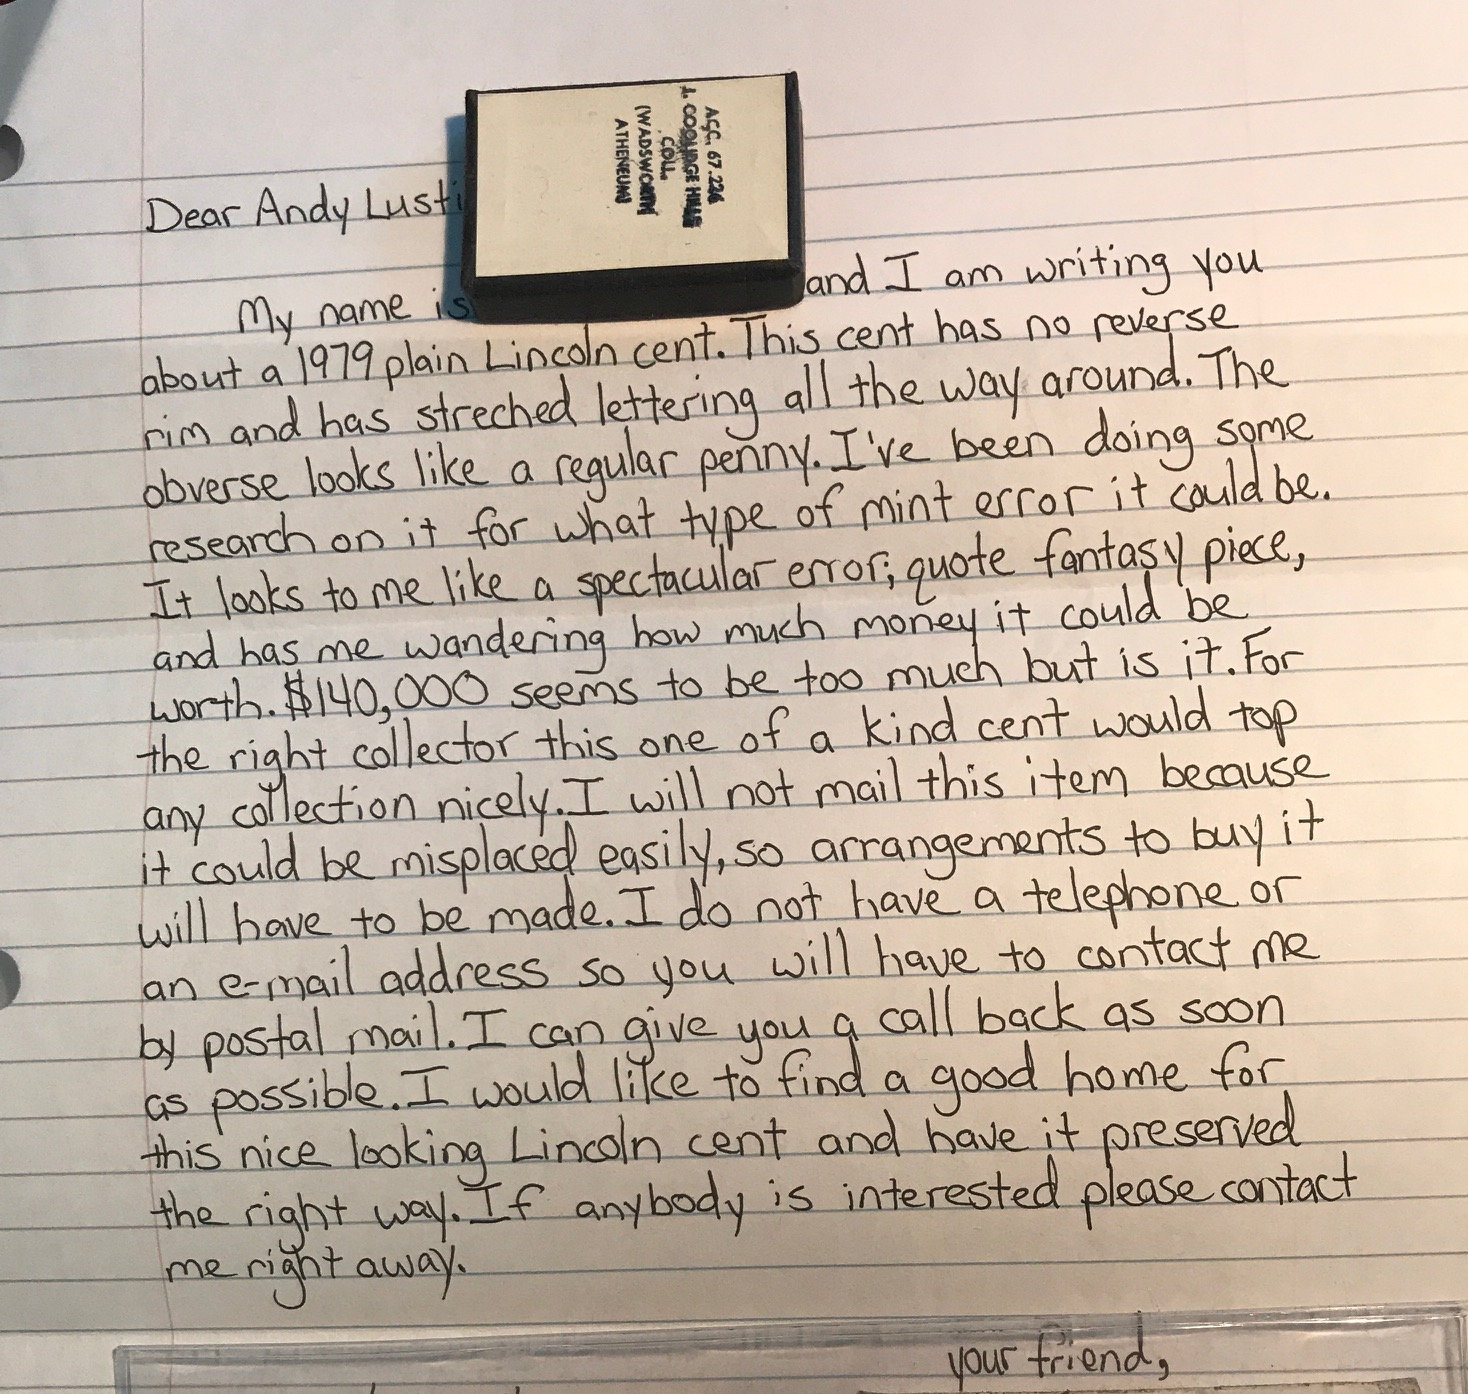 ACC. 67.226
J. COOLIDGE HILLS
COLL.
(WADSWORTH
ATHENEUM)
Dear Andy Lusti
My name is and I am writing you
about a 1979 plain Lincoln cent. This cent has no reverse
rim and has streched lettering all the way around. The
obverse looks like a regular penny. I've been doing some
research on it for what type of mint error it could be.
It looks to me like a spectacular error; quote fantasy piece,
and has me wandering how much money it could be
worth. $140,000 seems to be too much but is it. For
the right collector this one of a kind cent would top
any collection nicely. I will not mail this item because
it could be misplaced easily, so arrangements to buy it
will have to be made. I do not have a telephone or
an e-mail address so you will have to contact me
by postal mail. I can give you a call back as soon
as possible. I would like to find a good home for
this nice looking Lincoln cent and have it preserved
the right way. If anybody is interested please contact
me right away.
your friend,